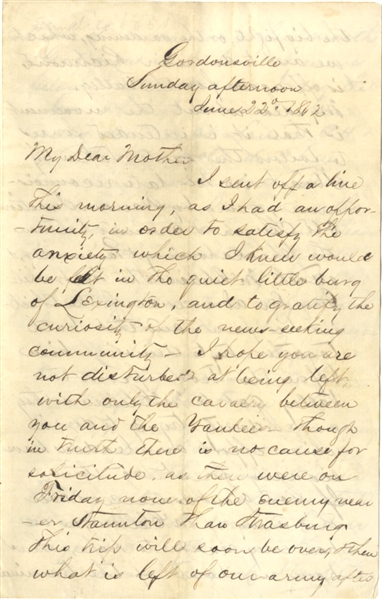 Gordonsville
Sunday afternoon
June 22d 1862
My Dear Mother
I sent off a line
this morning, as I had an oppor-
-tunity, in order to satisfy the
anxiety which I knew would
be felt in the quiet little burg
of Lexington, and to gratify the
curiosity of the news-seeking
community - I hope you are
not disturbed at being left
with only the cavalry between
you and the Yankees though
in truth there is no cause for
solicitude as there were on
Friday none of the enemy near
-er Staunton than Strasburg
This trip will soon be over, & then
what is left of our army after